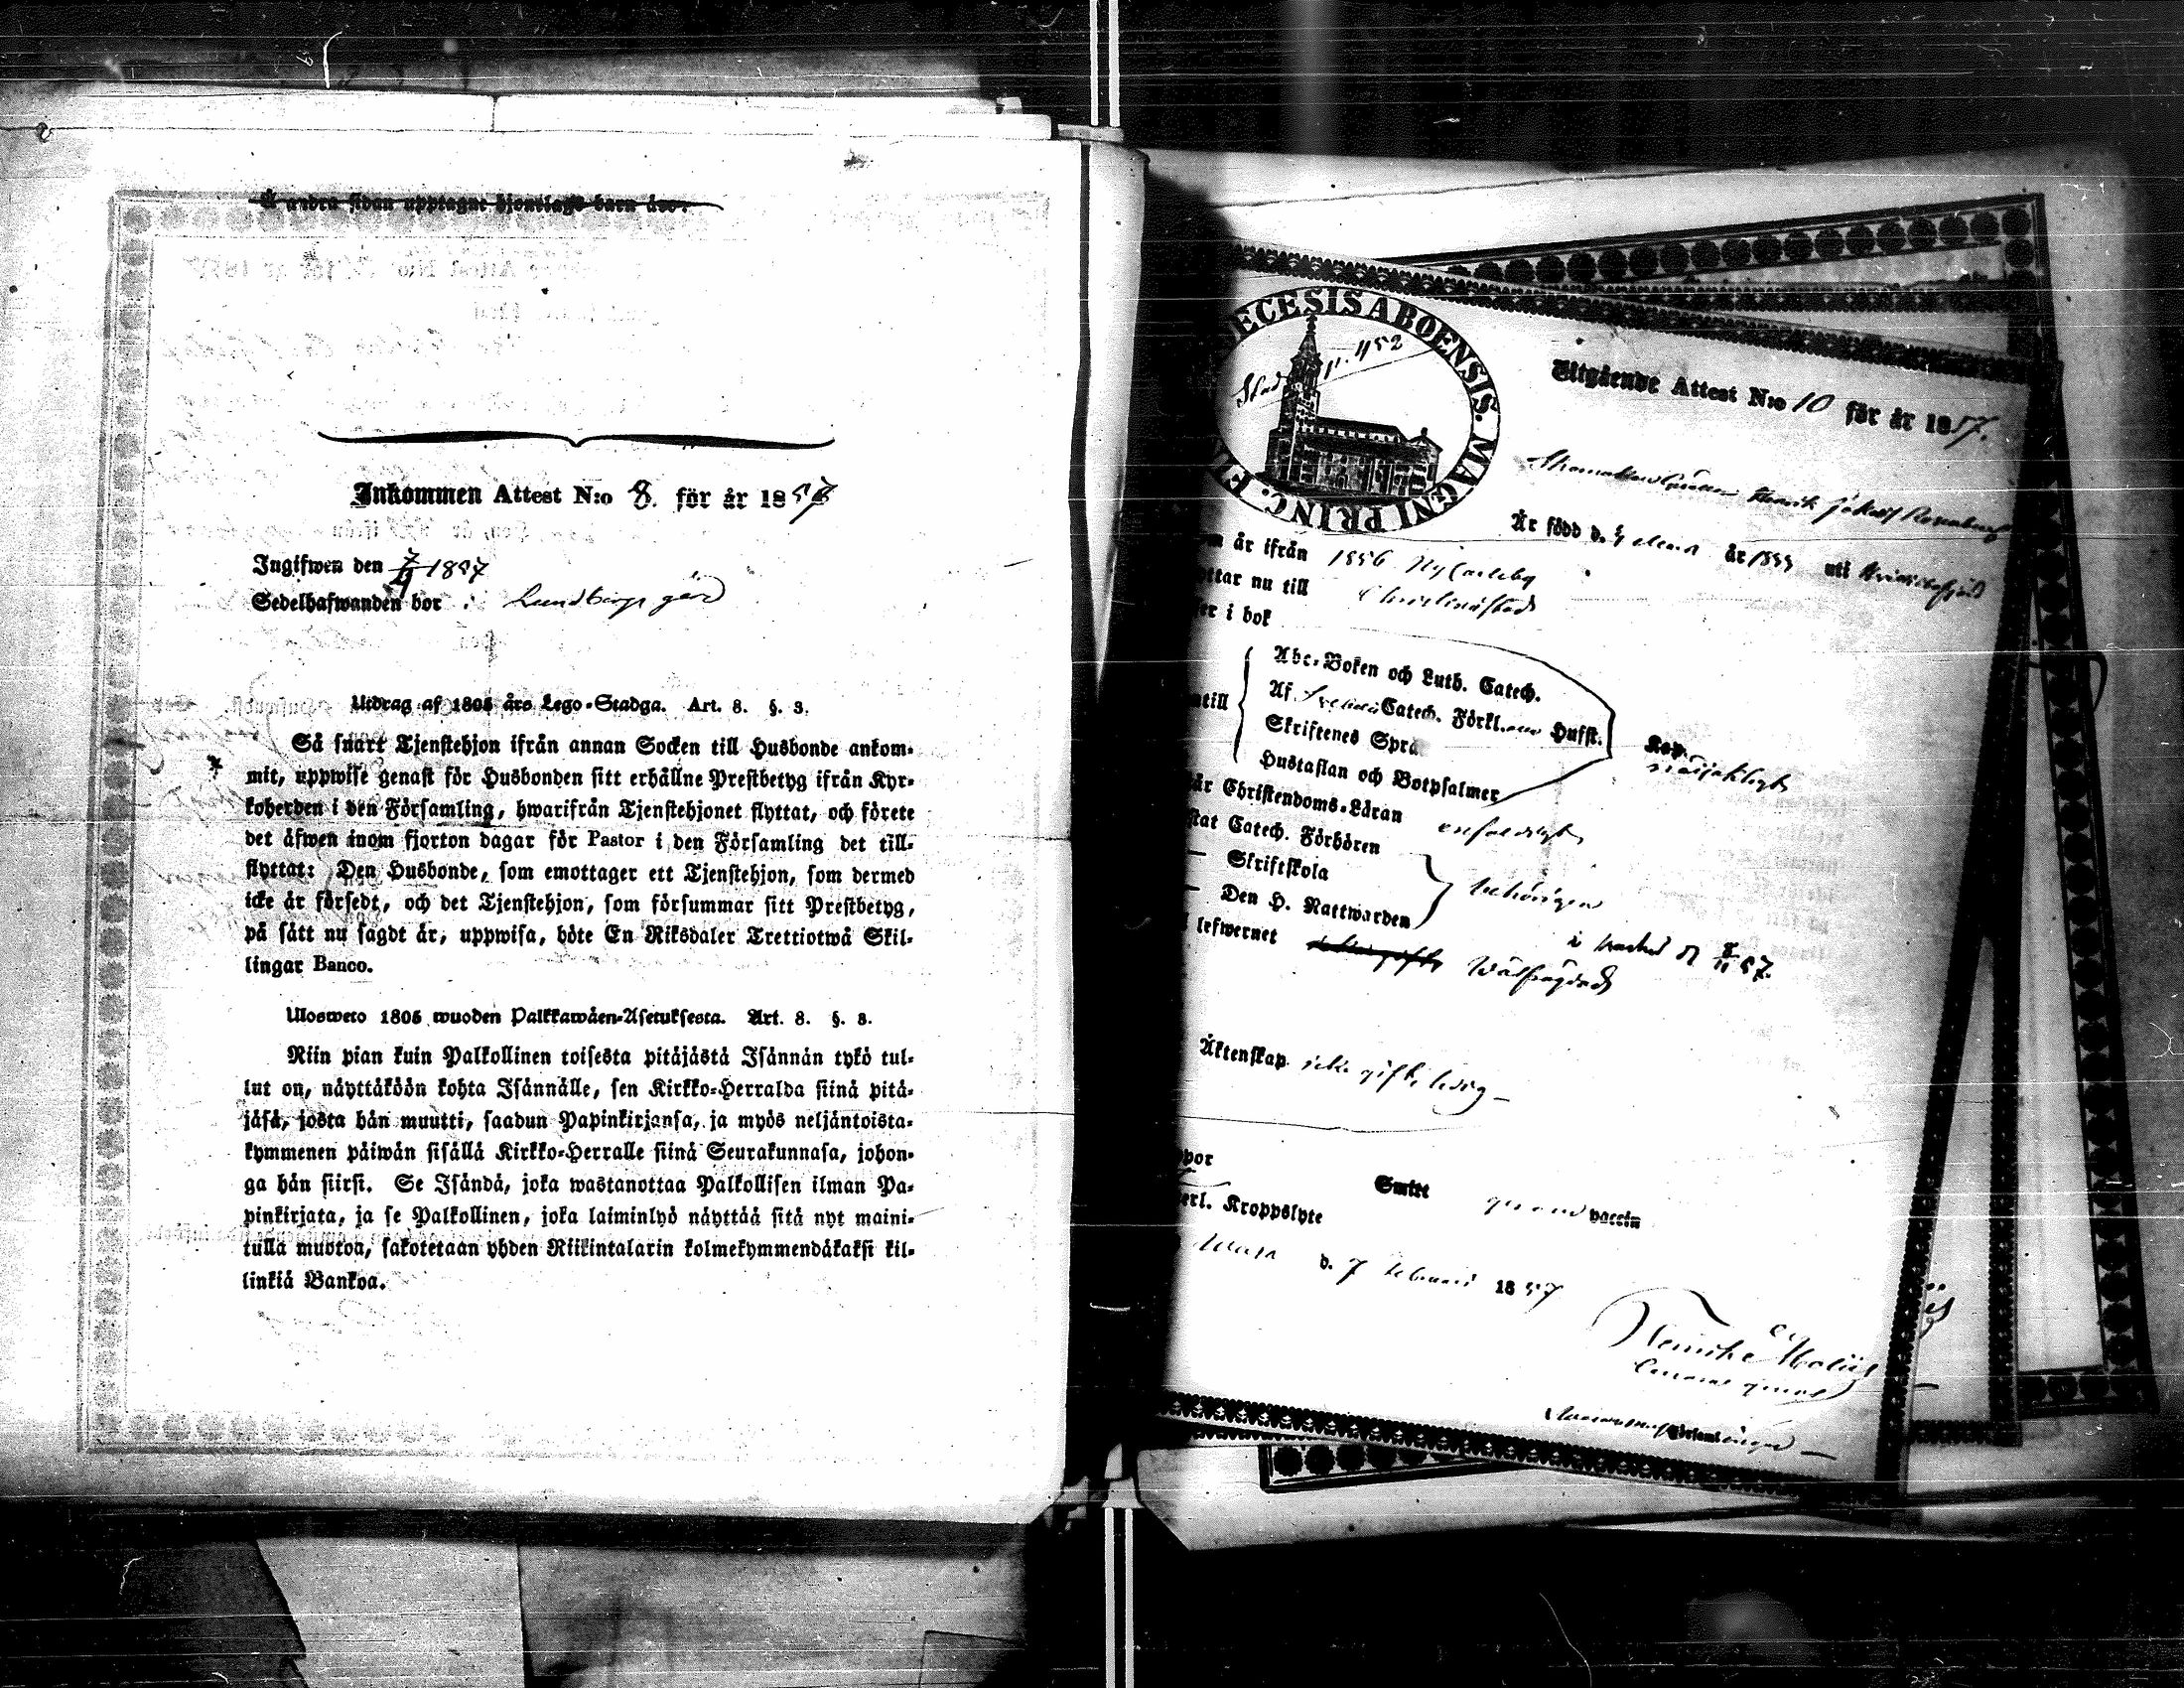 Å andra sidan upptagne hjonelags barn äro.
Inkommen Attest N:o 8. för år 1857
Ingifwen den 7/9 1857
Sedelhafwanden bor i Lundbergs gård
Utdrag af 1805 års Lego-Stadga. Art. 8. §. 3.
Så snart Tjenstehjon ifrån annan Socken till Husbonde ankom-
mit, uppwise genast för Husbonden sitt erhållne Prestbetyg ifrån Kyr-
koherden i den Församling, hwarifrån Tjenstehjonet flyttat, och förete
det äfwen inom fjorton dagar för Pastor i den Församling det till-
flyttat: Den Husbonde, som emottager ett Tjenstehjon, som dermed
icke är försedt, och det Tjenstehjon, som försummar sitt Prestbetyg,
på sätt nu sagdt är, uppwisa, böte En Riksdaler Trettiotwå Skil-
lingar Banco.
Ulosweto 1805 wuoden Palkkawäen-Asetuksesta. Art. 8. §. 3.
Niin pian kuin Palkollinen toisesta pitäjästä Isännän tykö tul-
lut on, näyttäköön kohta Isännälle, sen Kirkko-Herralda siinä pitä-
jäsä, josta hän muutti, saadun Papinkirjansa, ja myös neljäntoista-
kymmenen päiwän sisällä Kirkko-Herralle siinä Seurakunnasa, johon-
ga hän siirsi. Se Isändä, joka wastanottaa Palkollisen ilman Pa-
pinkirjata, ja se Palkollinen, joka laiminlyö näyttää sitä nyt maini-
tulla muotoa, sakotetaan yhden Riikintalarin kolmekymmendäkaksi kil-
linkiä Bankoa.
ECESIS ABOENSIS. MAGNI PRINC.
Stad p. 452
Utgående Attest N:o 10 för år 1857.
Henrik Jakob Rosenberg
Är född d. år 1833 uti
år ifrån 1856 NyCarleby
ttar nu till Christinestad
er i bok
Abc-Boken och Luth. Catech.
Af Svebilii Catech. Förkl. Husst.
Skriftenes Språ
Hustaflan och Botpsalmer
ntill
Nöjaktligt
år Christendoms-Läran enfaldigt
stat Catech. Förhören
Skriftskola
Den H. Nattwarden
behörigen
i
57.
lefwernet Wälfrägdad
Äktenskap icke gift, ledig
por
Smitt genom vaccin
erl. Kroppslyte
Wasa d. 7 Februari 1857